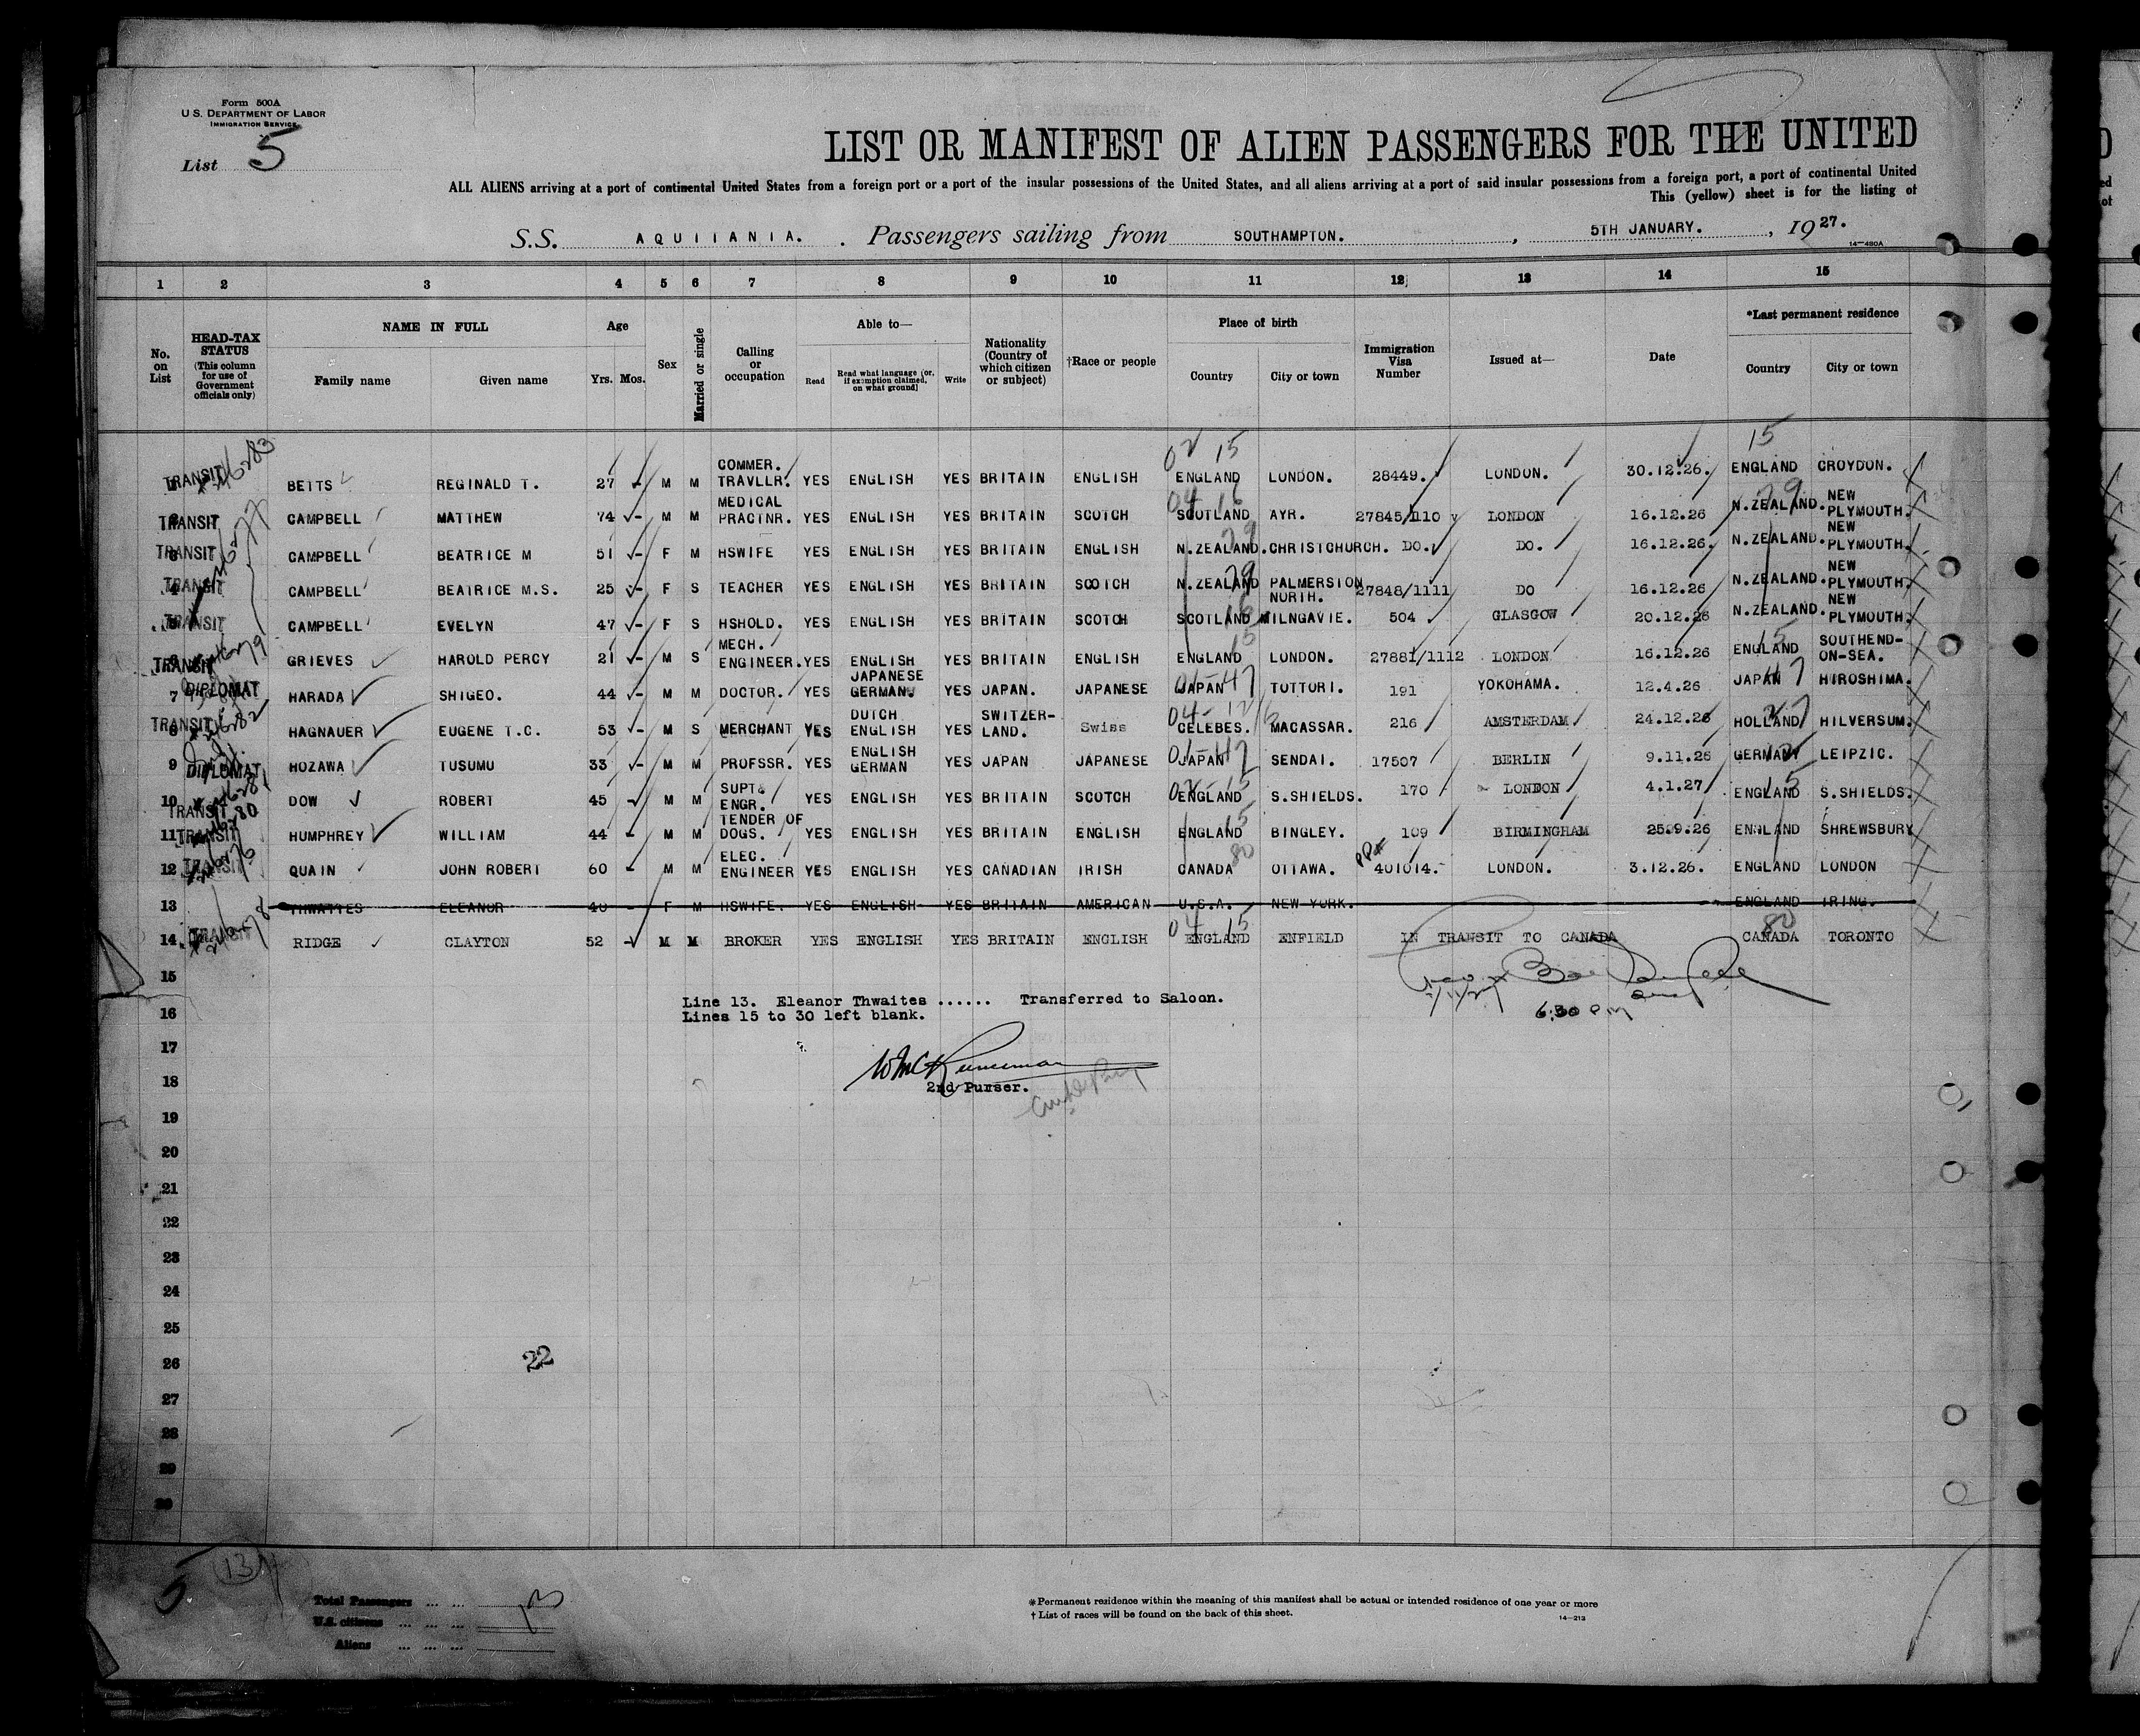 Form 500A
U. S. DEPARTMENT OF LABOR
IMMIGRATION SERVICE
List 5
LIST OR MANIFEST OF ALIEN PASSENGERS FOR THE UNITED
ALL ALIENS arriving at a port of continental United States from a foreign port or a port of the insular possessions of the United States, and all aliens arriving at a port of said insular possessions from a foreign port, a port of continental United
This (yellow) sheet is for the listing of
S.S. AQUITANIA. Passengers sailing from SOUTHAMPTON. , 5TH JANUARY. , 1927.
14—480A
1 2 3 4 5 6 7 8 9 10 11 12 13 14 15
No. on List
HEAD-TAX STATUS (This column for use of Government officials only)
NAME IN FULL Family name Given name
Age Yrs. Mos.
Sex
Married or single
Calling or occupation
Able to— Read Read what language (or, if exemption claimed, on what ground) Write
Nationality (Country of which citizen or subject)
†Race or people
Place of birth Country City or town
Immigration Visa Number
Issued at—
Date
*Last permanent residence Country City or town
TRANSIT BETTS REGINALD T. 27 M M COMMER. TRAVLLR. YES ENGLISH YES BRITAIN ENGLISH ENGLAND LONDON. 28449. LONDON. 30.12.26. ENGLAND CROYDON.
TRANSIT CAMPBELL MATTHEW 74 M M MEDICAL PRACTNR. YES ENGLISH YES BRITAIN SCOTCH SCOTLAND AYR. 27845/1110 LONDON 16.12.26 N.ZEALAND. NEW PLYMOUTH.
TRANSIT CAMPBELL BEATRICE M 51 F M HSWIFE YES ENGLISH YES BRITAIN ENGLISH N.ZEALAND. CHRISTCHURCH. DO. DO. 16.12.26. N.ZEALAND. NEW PLYMOUTH.
TRANSIT CAMPBELL BEATRICE M.S. 25 F S TEACHER YES ENGLISH YES BRITAIN SCOTCH N.ZEALAND PALMERSTON NORTH. 27848/1111 DO 16.12.26 N.ZEALAND. NEW PLYMOUTH.
TRANSIT CAMPBELL EVELYN 47 F S HSHOLD. YES ENGLISH YES BRITAIN SCOTCH SCOTLAND MILNGAVIE. 504 GLASGOW 20.12.26 N.ZEALAND. NEW PLYMOUTH.
TRANSIT GRIEVES HAROLD PERCY 21 M S MECH. ENGINEER. YES ENGLISH YES BRITAIN ENGLISH ENGLAND LONDON. 27881/1112 LONDON 16.12.26 ENGLAND SOUTHEND-ON-SEA.
7 DIPLOMAT HARADA SHIGEO. 44 M M DOCTOR. YES JAPANESE GERMAN. YES JAPAN. JAPANESE JAPAN TOTTORI. 191 YOKOHAMA. 12.4.26 JAPAN HIROSHIMA.
TRANSIT HAGNAUER EUGENE T.C. 53 M S MERCHANT YES DUTCH ENGLISH YES SWITZER-LAND. Swiss CELEBES. MACASSAR. 216 AMSTERDAM 24.12.26 HOLLAND HILVERSUM.
9 DIPLOMAT HOZAWA TUSUMU 33 M M PROFSSR. YES ENGLISH GERMAN YES JAPAN JAPANESE JAPAN SENDAI. 17507 BERLIN 9.11.26 GERMANY LEIPZIC.
10 TRANSIT DOW ROBERT 45 M M SUPT& ENGR. YES ENGLISH YES BRITAIN SCOTCH ENGLAND S.SHIELDS. 170 LONDON 4.1.27 ENGLAND S.SHIELDS.
11 TRANSIT HUMPHREY WILLIAM 44 M M TENDER OF DOGS. YES ENGLISH YES BRITAIN ENGLISH ENGLAND BINGLEY. 109 BIRMINGHAM 25.9.26 ENGLAND SHREWSBURY
12 TRANSIT QUAIN JOHN ROBERT 60 M M ELEC. ENGINEER YES ENGLISH YES CANADIAN IRISH CANADA OTTAWA. 401014. LONDON. 3.12.26. ENGLAND LONDON
13 THWAITES ELEANOR 40 F M HSWIFE. YES ENGLISH YES BRITAIN AMERICAN U.S.A. NEW YORK. ENGLAND TRING.
14 TRANSIT RIDGE CLAYTON 52 M M BROKER YES ENGLISH YES BRITAIN ENGLISH ENGLAND ENFIELD IN TRANSIT TO CANADA CANADA TORONTO
15
Line 13. Eleanor Thwaites ...... Transferred to Saloon.
16
Lines 15 to 30 left blank.
6:30 PM
17
18
2nd Purser.
19
20
21
22
23
24
25
26
22
27
28
29
30
5
13
Total Passengers ... ... 13
U.S. citizens ... ... ...
Aliens ... ... ...
*Permanent residence within the meaning of this manifest shall be actual or intended residence of one year or more
†List of races will be found on the back of this sheet.
14—213